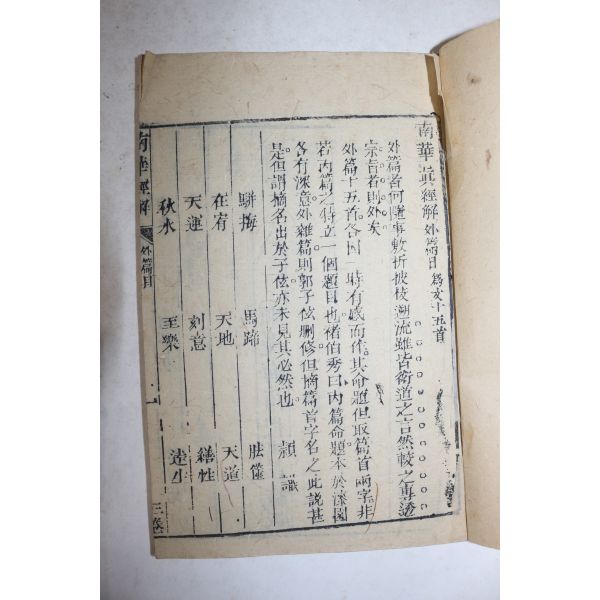 南華眞經解外篇目 爲文十五首
外篇者何隨事敷折披枝溯流雖皆衛道之言然較之專透
宗旨者則外矣
外篇十五首各因一時有感而作其命題但取篇首兩字非
若内篇之特立一個題目也褚伯秀曰内篇命題本於漆園
各有深意外雜篇則郭子玄刪修但摘篇首字名之此說甚
是但謂摘名出於子玄亦未見其必然也 穎識
駢拇 馬蹄 胠篋
在宥 天地 天道
天運 刻意 繕性
秋水 至樂 達生
南華經解 外篇目 一 三卷